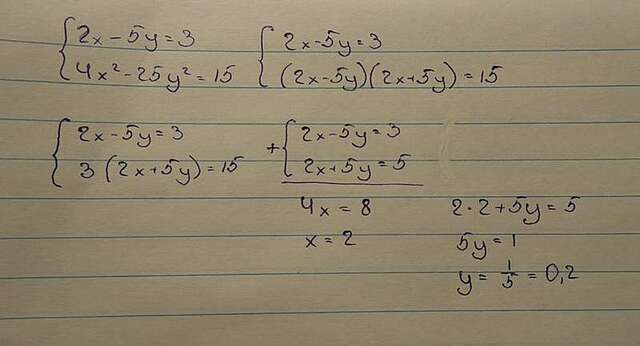 2x-5y=3
4x²-25y²=15
2x-5y=3
(2x-5y)(2x+5y)=15
2x-5y=3
3(2x+5y)=15
+ 2x-5y=3
2x+5y=5
4x=8
x=2
2·2+5y=5
5y=1
y=1/5=0,2